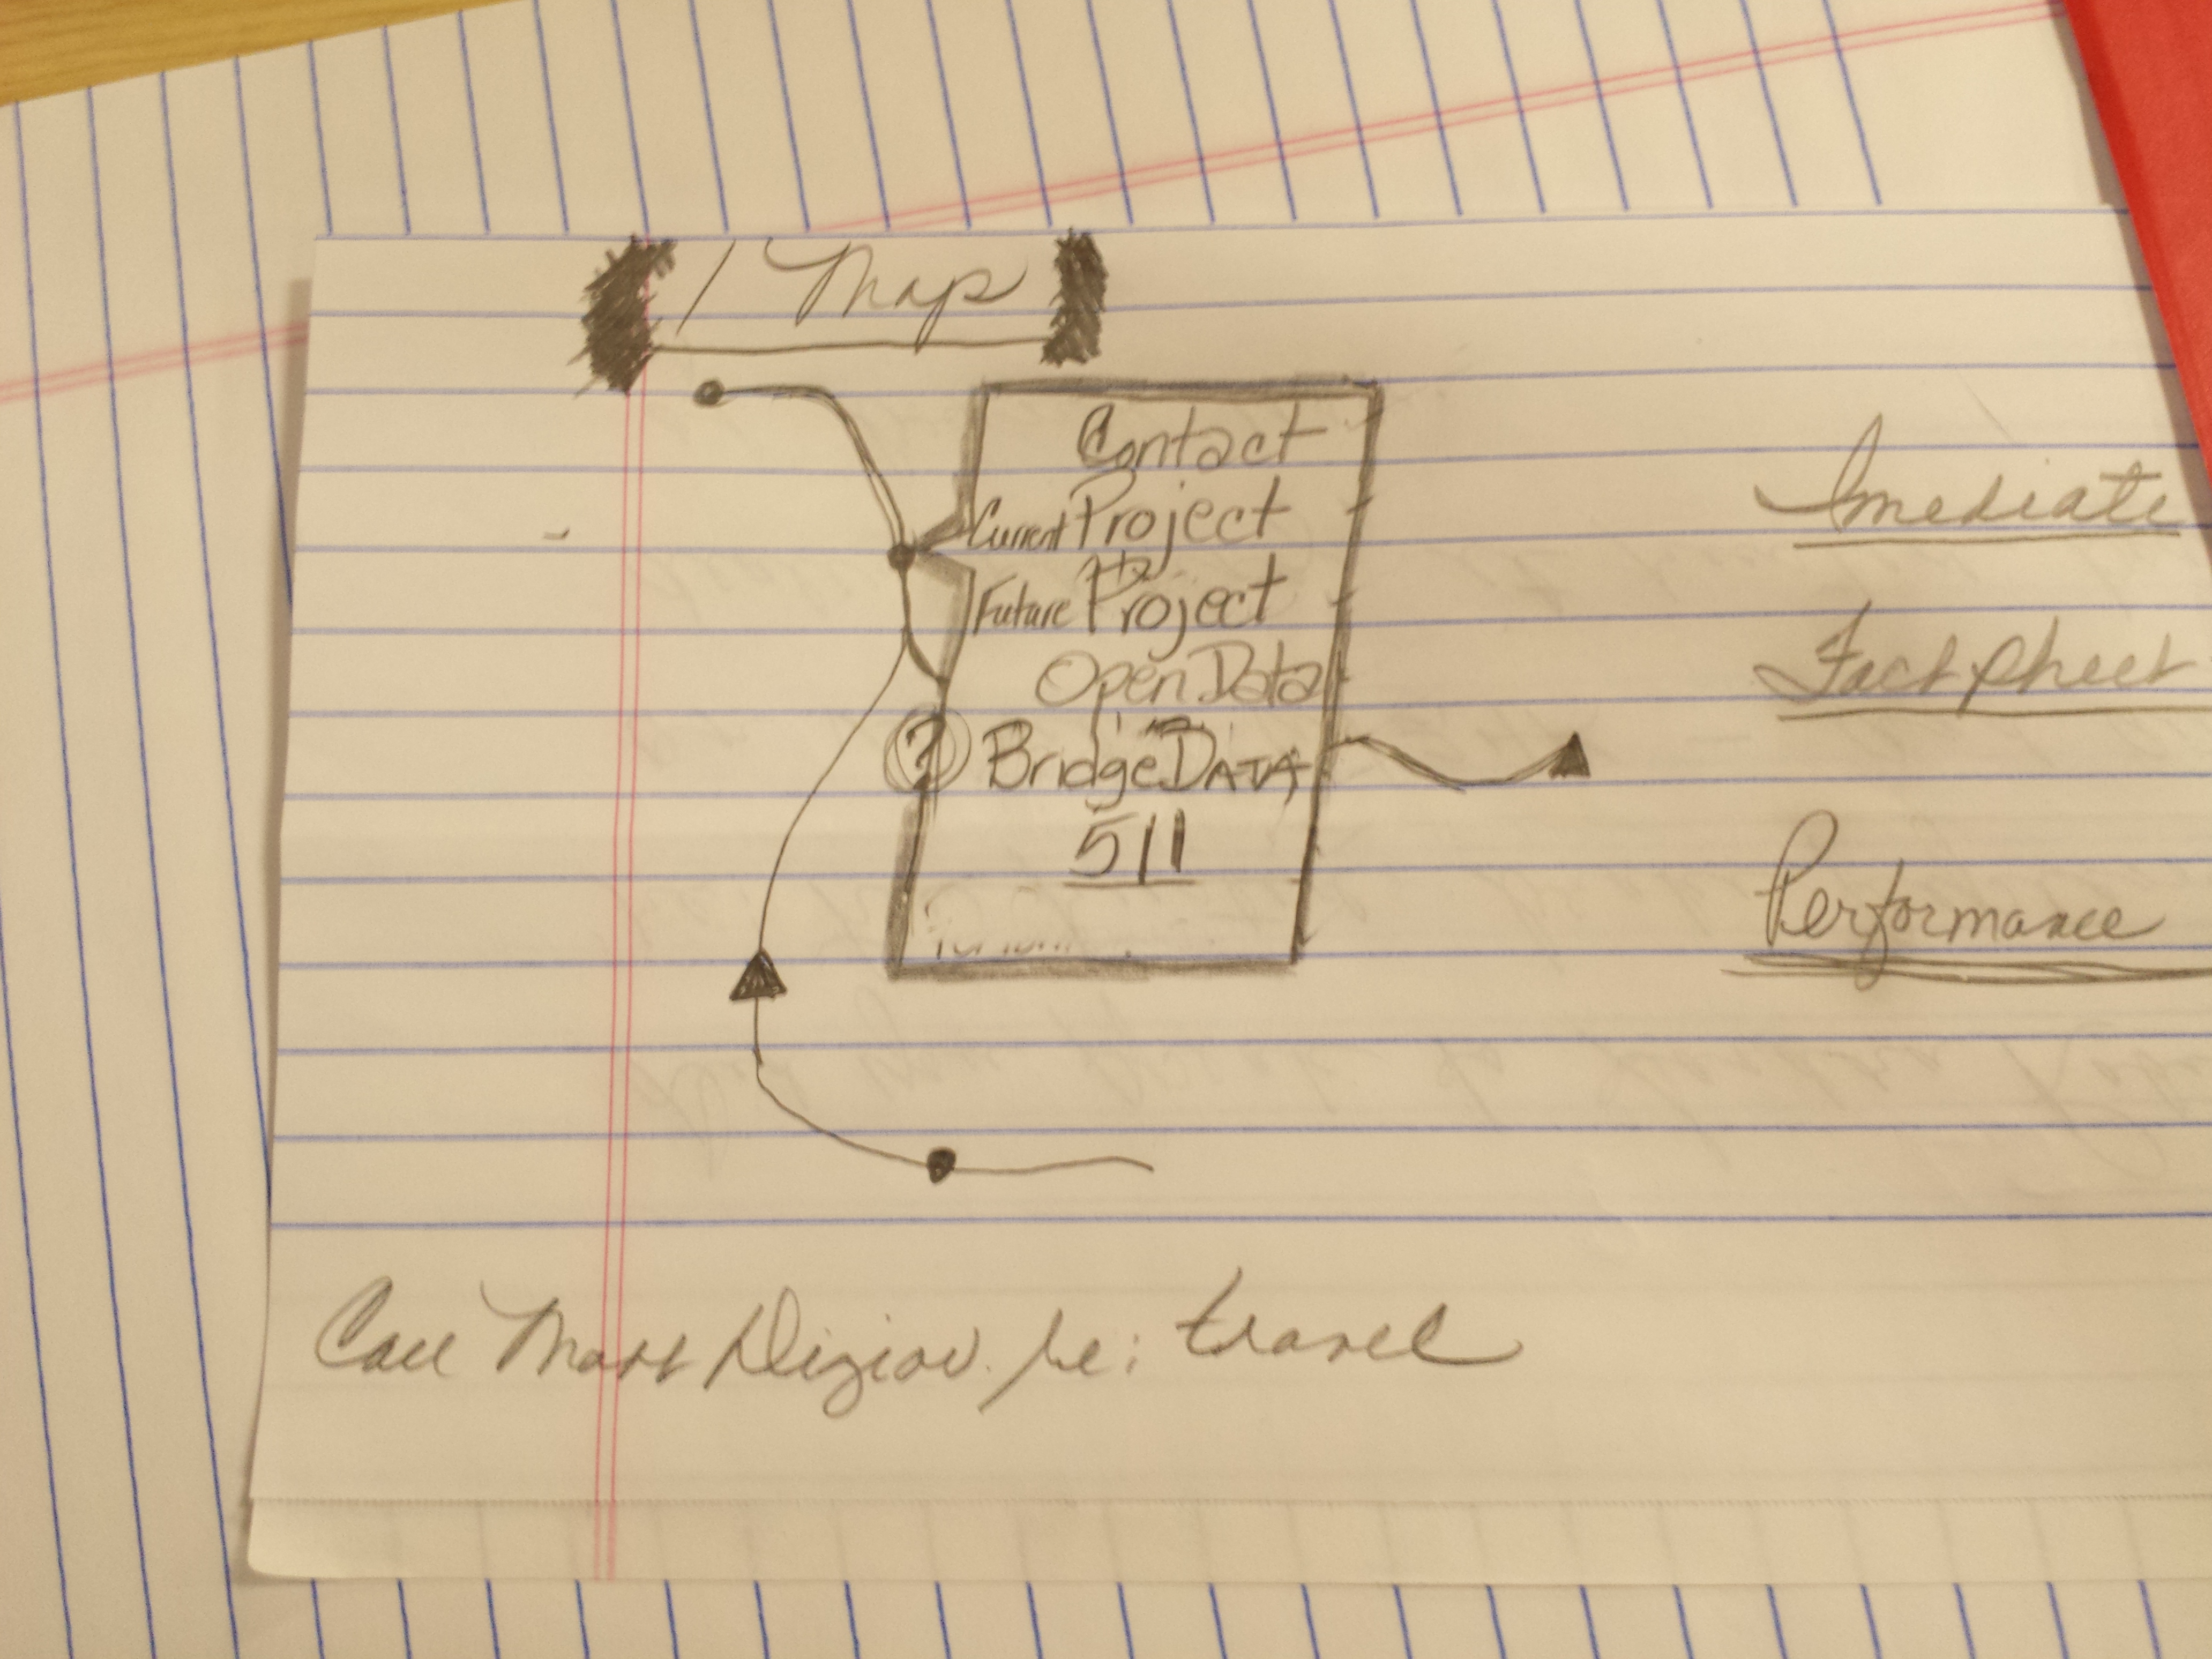 1 Map
Contact
Current Project
Future Project
Open Data
? Bridge DATA
511
Imediate
Fact sheet
Performance
Call re: travel